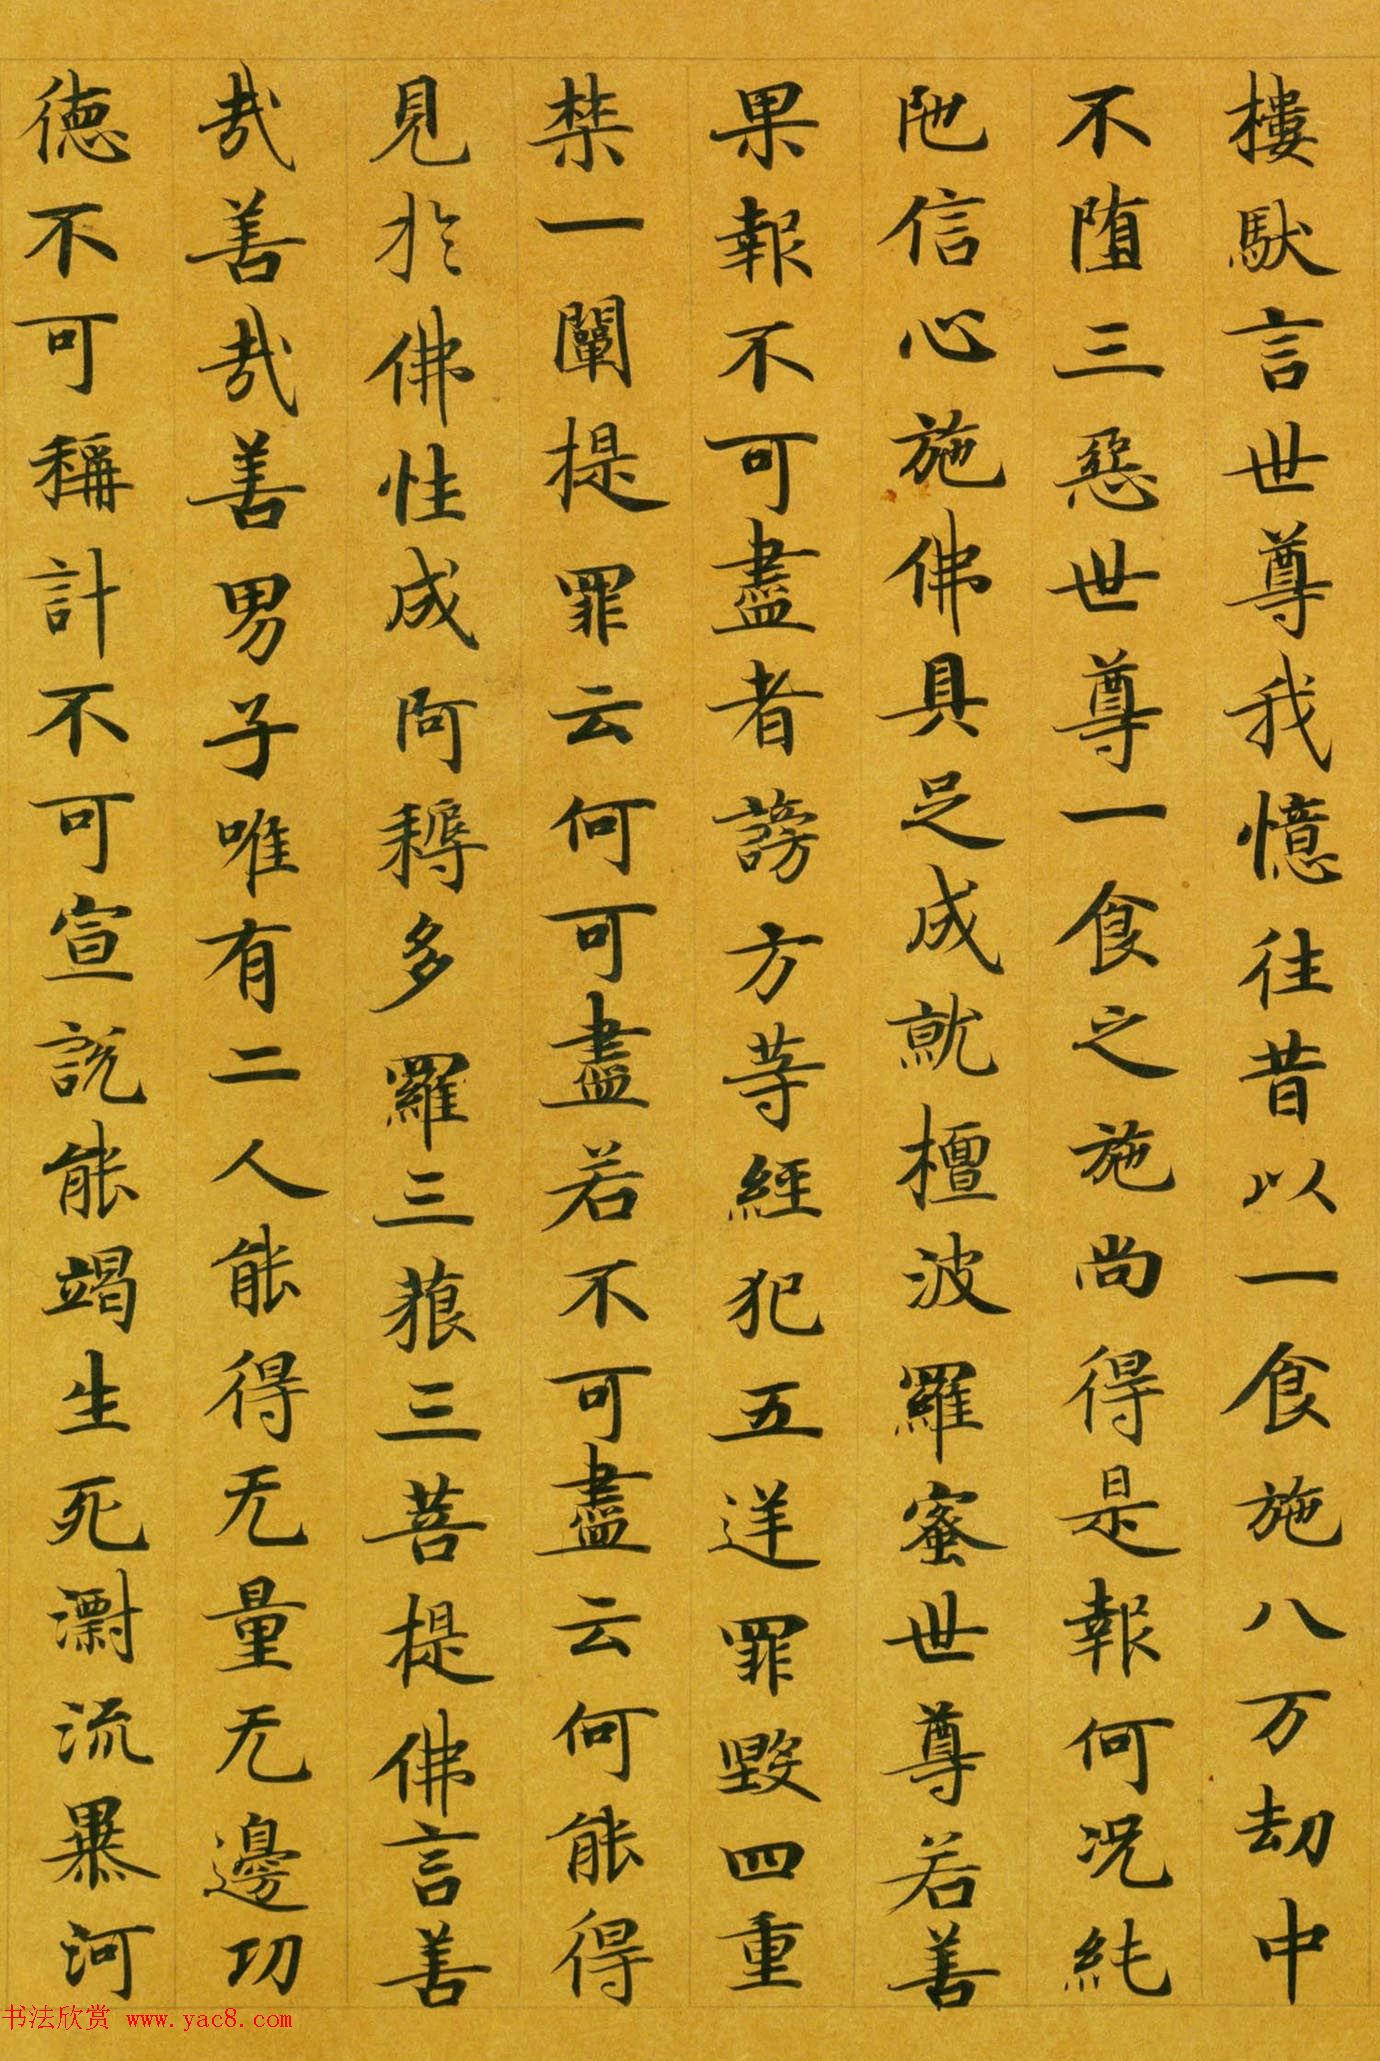 樓馱言世尊我憶往昔以一食施八万劫中
不墮三惡世尊一食之施尚得是報何況純
陁信心施佛具足成就檀波羅蜜世尊若善
果報不可盡者謗方等經犯五逆罪毀四重
禁一闡提罪云何可盡若不可盡云何能得
見於佛性成阿耨多羅三藐三菩提佛言善
哉善哉善男子唯有二人能得无量无邊功
德不可稱計不可宣說能竭生死瀑流暴河
书法欣赏 www.yac8.com